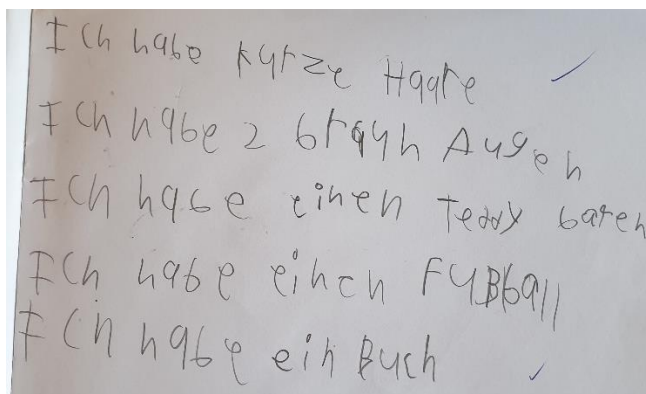 Ich habe kurze Haare
Ich habe 2 braun Augen
Ich habe einen Teddy baren
Ich habe einen Fußball
Ich habe ein Buch